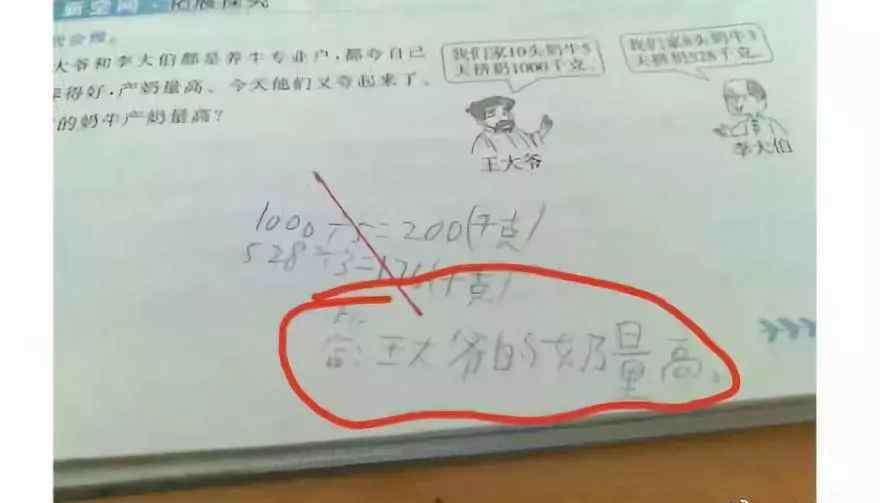 新空间·拓展探究
我会做。
大爷和李大伯都是养牛专业户,都夸自己
得好,产奶量高、今天他们又夸起来了。
的奶牛产奶量高?
我们家10头奶牛5
天挤奶1000千克.
我们家8头奶牛3
天挤奶528千克.
王大爷
李大伯
1000÷5=200(千克)
528÷3=176(千克)
答:王大爷的女乃量高。